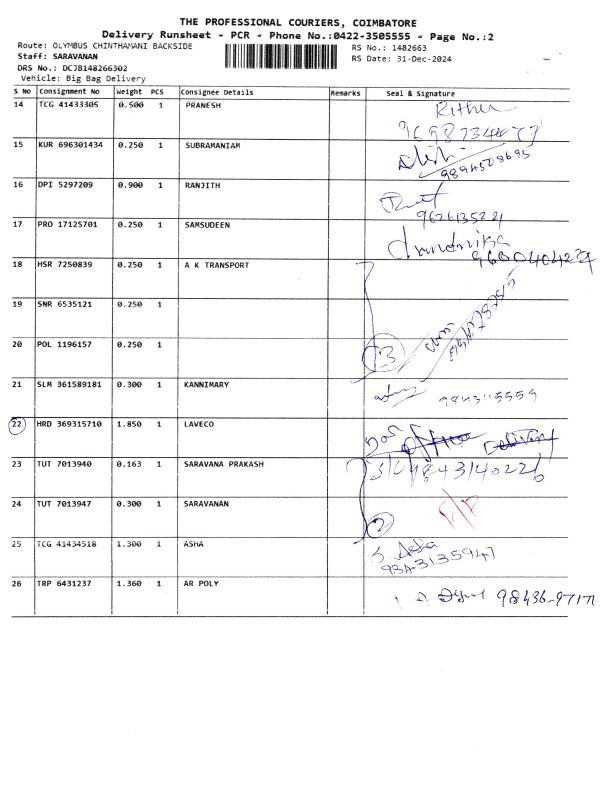 THE PROFESSIONAL COURIERS, COIMBATORE
Delivery Runsheet - PCR - Phone No.:0422-3505555 - Page No.:2
Route: OLYMBUS CHINTHAMANI BACKSIDE RS No.: 1482663
Staff: SARAVANAN RS Date: 31-Dec-2024
DRS No.: DCJB148266302
Vehicle: Big Bag Delivery
S No Consignment No Weight PCS Consignee Details Remarks Seal & Signature
14 TCG 41433305 0.500 1 PRANESH
15 KUR 696301434 0.250 1 SUBRAMANIAM
16 DPI 5297209 0.900 1 RANJITH
9626135221
17 PRO 17125701 0.250 1 SAMSUDEEN
18 HSR 7250839 0.250 1 A K TRANSPORT
19 SNR 6535121 0.250 1
20 POL 1196157 0.250 1 3
21 SLM 361589181 0.300 1 KANNIMARY
22 HRD 369315710 1.850 1 LAVECO
Office Delivery
23 TUT 7013940 0.163 1 SARAVANA PRAKASH
9843140226
24 TUT 7013947 0.300 1 SARAVANAN
2
25 TCG 41434518 1.300 1 ASHA S. Asha
26 TRP 6431237 1.360 1 AR POLY 98436-97171